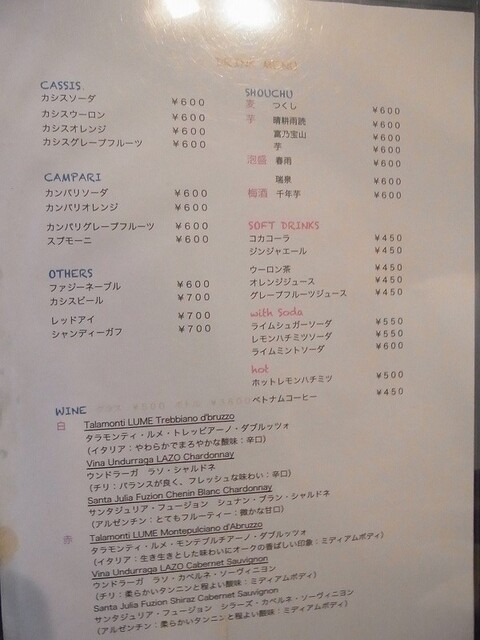 DRINK MENU
CASSIS
カシスソーダ ￥600
カシスウーロン ￥600
カシスオレンジ ￥600
カシスグレープフルーツ ￥600
CAMPARI
カンパリソーダ ￥600
カンパリオレンジ ￥600
カンパリグレープフルーツ ￥600
スプモーニ ￥600
OTHERS
ファジーネーブル ￥600
カシスビール ￥700
レッドアイ ￥700
シャンディーガフ ￥700
SHOUCHU
麦 つくし ￥600
芋 晴耕雨読 ￥600
富乃宝山 ￥600
芋 ￥600
泡盛 春雨 ￥600
瑞泉 ￥600
梅酒 千年芋 ￥600
SOFT DRINKS
コカコーラ ￥450
ジンジャエール ￥450
ウーロン茶 ￥450
オレンジジュース ￥450
グレープフルーツジュース ￥450
with Soda
ライムシュガーソーダ ￥550
レモンハチミツソーダ ￥550
ライムミントソーダ ￥600
hot
ホットレモンハチミツ ￥500
ベトナムコーヒー ￥450
WINE
白 Talamonti LUME Trebbiano d'bruzzo
タラモンティ・ルメ・トレッビアーノ・ダブルッツォ
（イタリア：やわらかでまろやかな酸味：辛口）
Vina Undurraga LAZO Chardonnay
ウンドラーガ ラソ・シャルドネ
（チリ：バランスが良く、フレッシュな味わい：辛口）
Santa Julia Fuzion Chenin Blanc Chardonnay
サンタジュリア・フュージョン シュナン・ブラン・シャルドネ
（アルゼンチン：とてもフルーティー：微かな甘口）
赤 Talamonti LUME Montepulciano d'Abruzzo
タラモンティ・ルメ・モンテプルチアーノ・ダブルッツォ
（イタリア：生き生きとした味わいにオークの香ばしい印象：ミディアムボディ）
Vina Undurraga LAZO Cabernet Sauvignon
ウンドラーガ ラソ・カベルネ・ソーヴィニヨン
（チリ：柔らかいタンニンと程よい酸味：ミディアムボディ）
Santa Julia Fuzion Shiraz Cabernet Sauvignon
サンタジュリア・フュージョン シラーズ・カベルネ・ソーヴィニヨン
（アルゼンチン：柔らかいタンニンと程よい酸味：ミディアムボディ）